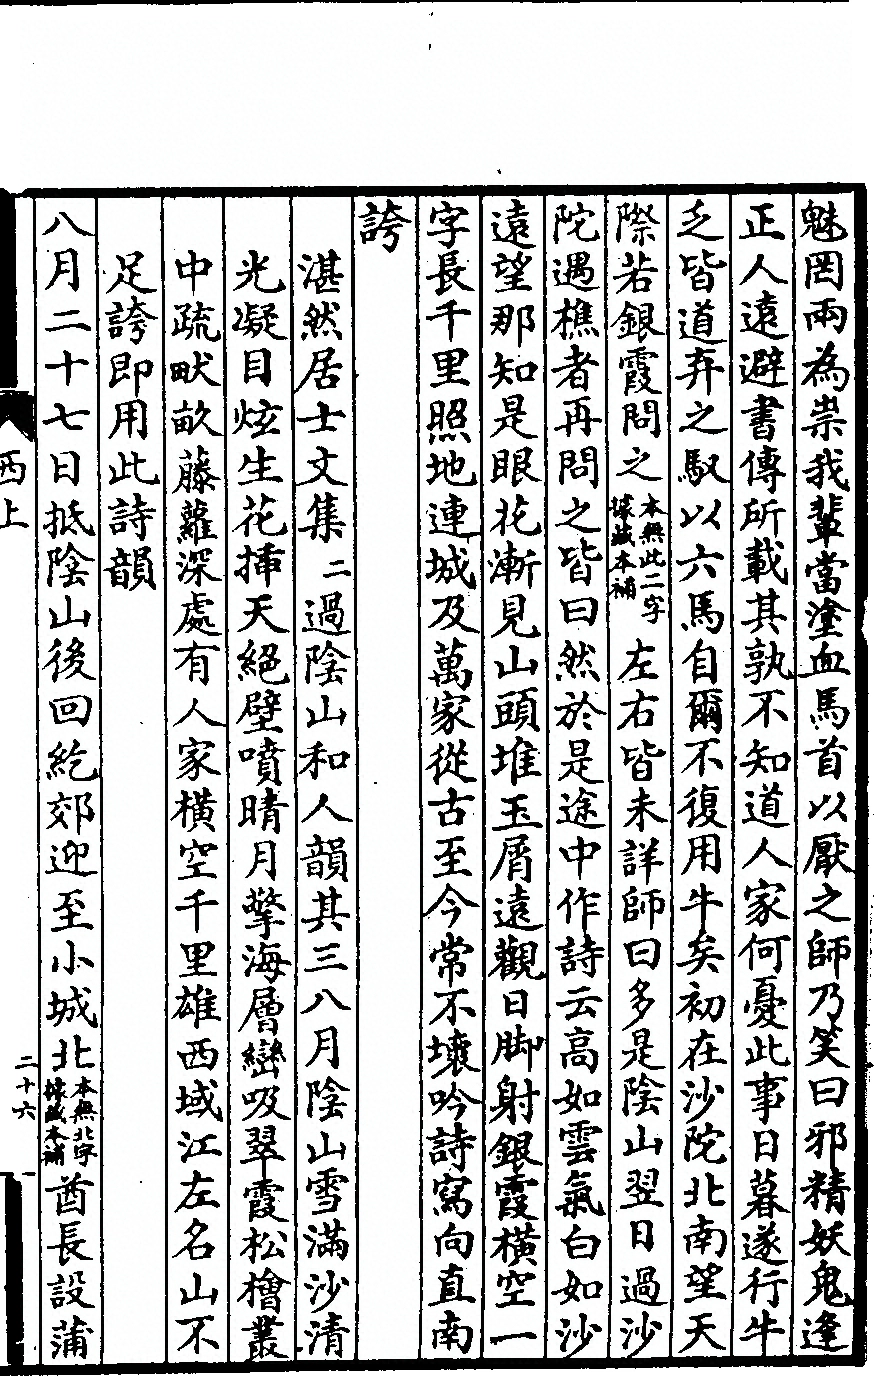 魅罔兩為祟我輩當塗血馬首以厭之師乃笑曰邪精妖鬼逢
正人遠避書傳所載其孰不知道人家何憂此事日暮遂行牛
乏皆道弃之馭以六馬自爾不復用牛矣初在沙陀北南望天
際若銀霞問之本無此二字據藏本補左右皆未詳師曰多是陰山翌日過沙
陀遇樵者再問之皆曰然於是途中作詩云高如雲氣白如沙
遠望那知是眼花漸見山頭堆玉屑遠觀日脚射銀霞橫空一
字長千里照地連城及萬家從古至今常不壞吟詩寫向直南
誇
湛然居士文集二過陰山和人韻其三八月陰山雪滿沙清
光凝目炫生花揷天絕壁噴晴月擎海層巒吸翠霞松檜叢
中疏畎畝藤蘿深處有人家橫空千里雄西域江左名山不
足誇即用此詩韻
八月二十七日抵陰山後回紇郊迎至小城北本無北字據藏本補酋長設蒲
西上
二十六